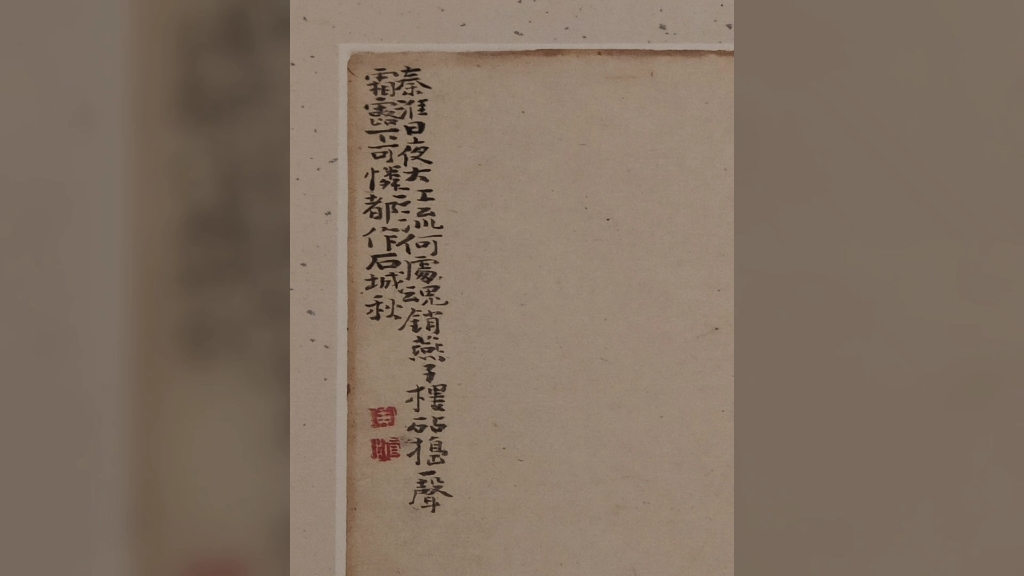 秦淮日夜大江流何處魂銷燕子樓砧搗一聲
霜露下可憐都作石城秋